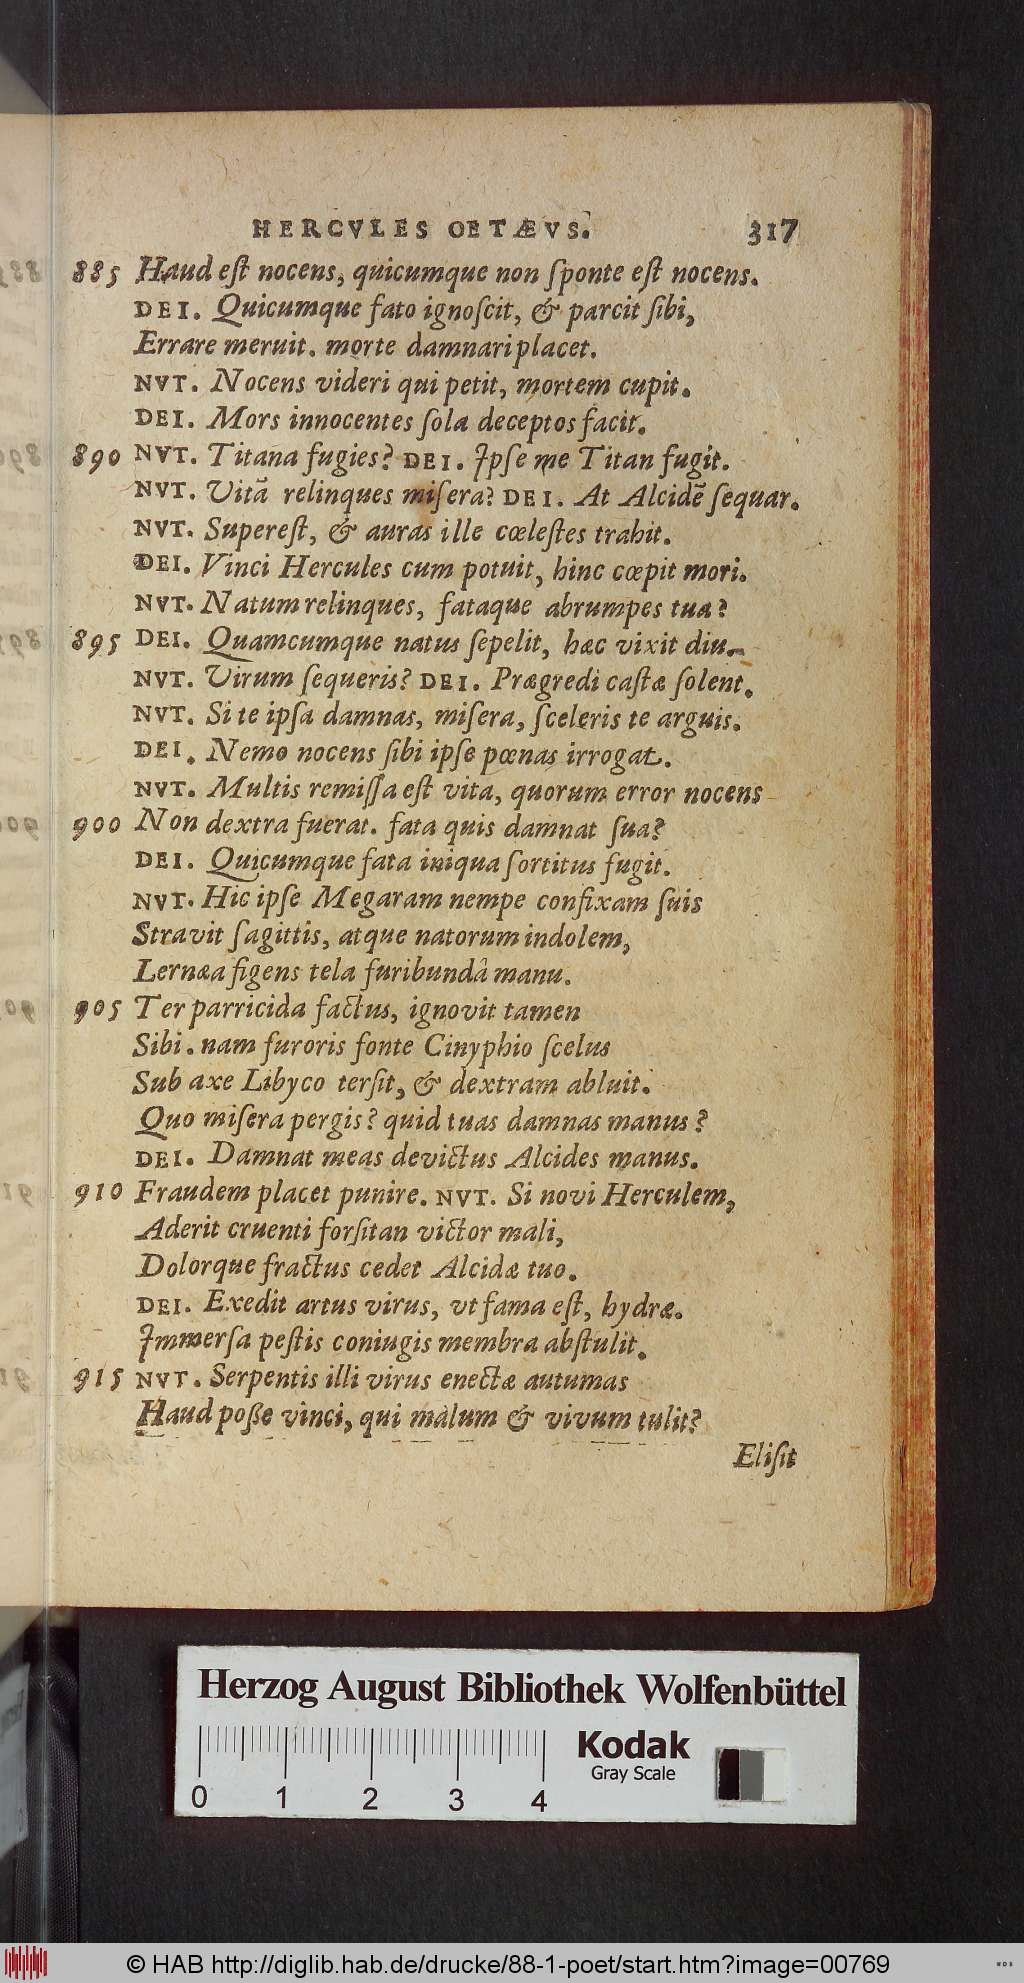 HERCVLES OETÆVS. 317
885 Haud eſt nocens, quicumque non ſponte eſt nocens.
DEI. Quicumque fato ignoſcit, & parcit ſibi,
Errare meruit. morte damnari placet.
NVT. Nocens videri qui petit, mortem cupit.
DEI. Mors innocentes ſola deceptos facit.
890 NVT. Titana fugies? DEI. Ipſe me Titan fugit.
NVT. Vitã relinques miſera? DEI. At Alcidẽ ſequar.
NVT. Supereſt, & auras ille cœleſtes trahit.
DEI. Vinci Hercules cum potuit, hinc cœpit mori.
NVT. Natum relinques, fataque abrumpes tua?
895 DEI. Quamcumque natus ſepelit, hæc vixit diu.
NVT. Virum ſequeris? DEI. Prægredi caſtæ ſolent.
NVT. Si te ipſa damnas, miſera, ſceleris te arguis.
DEI. Nemo nocens ſibi ipſe pœnas irrogat.
NVT. Multis remiſſa eſt vita, quorum error nocens
900 Non dextra fuerat. fata quis damnat ſua?
DEI. Quicumque fata iniqua ſortitus fugit.
NVT. Hic ipſe Megaram nempe confixam ſuis
Stravit ſagittis, atque natorum indolem,
Lernæa figens tela furibundâ manu.
905 Ter parricida factus, ignovit tamen
Sibi. nam furoris fonte Cinyphio ſcelus
Sub axe Libyco terſit, & dextram abluit.
Quo miſera pergis? quid tuas damnas manus?
DEI. Damnat meas devictus Alcides manus.
910 Fraudem placet punire. NVT. Si novi Herculem,
Aderit cruenti forſitan victor mali,
Dolorque fractus cedet Alcidæ tuo.
DEI. Exedit artus virus, vt fama eſt, hydræ.
Immerſa peſtis coniugis membra abſtulit.
915 NVT. Serpentis illi virus enectæ autumas
Haud poße vinci, qui malum & vivum tulit?
Eliſit
Herzog August Bibliothek Wolfenbüttel
Kodak
Gray Scale
0 1 2 3 4
© HAB http://diglib.hab.de/drucke/88-1-poet/start.htm?image=00769